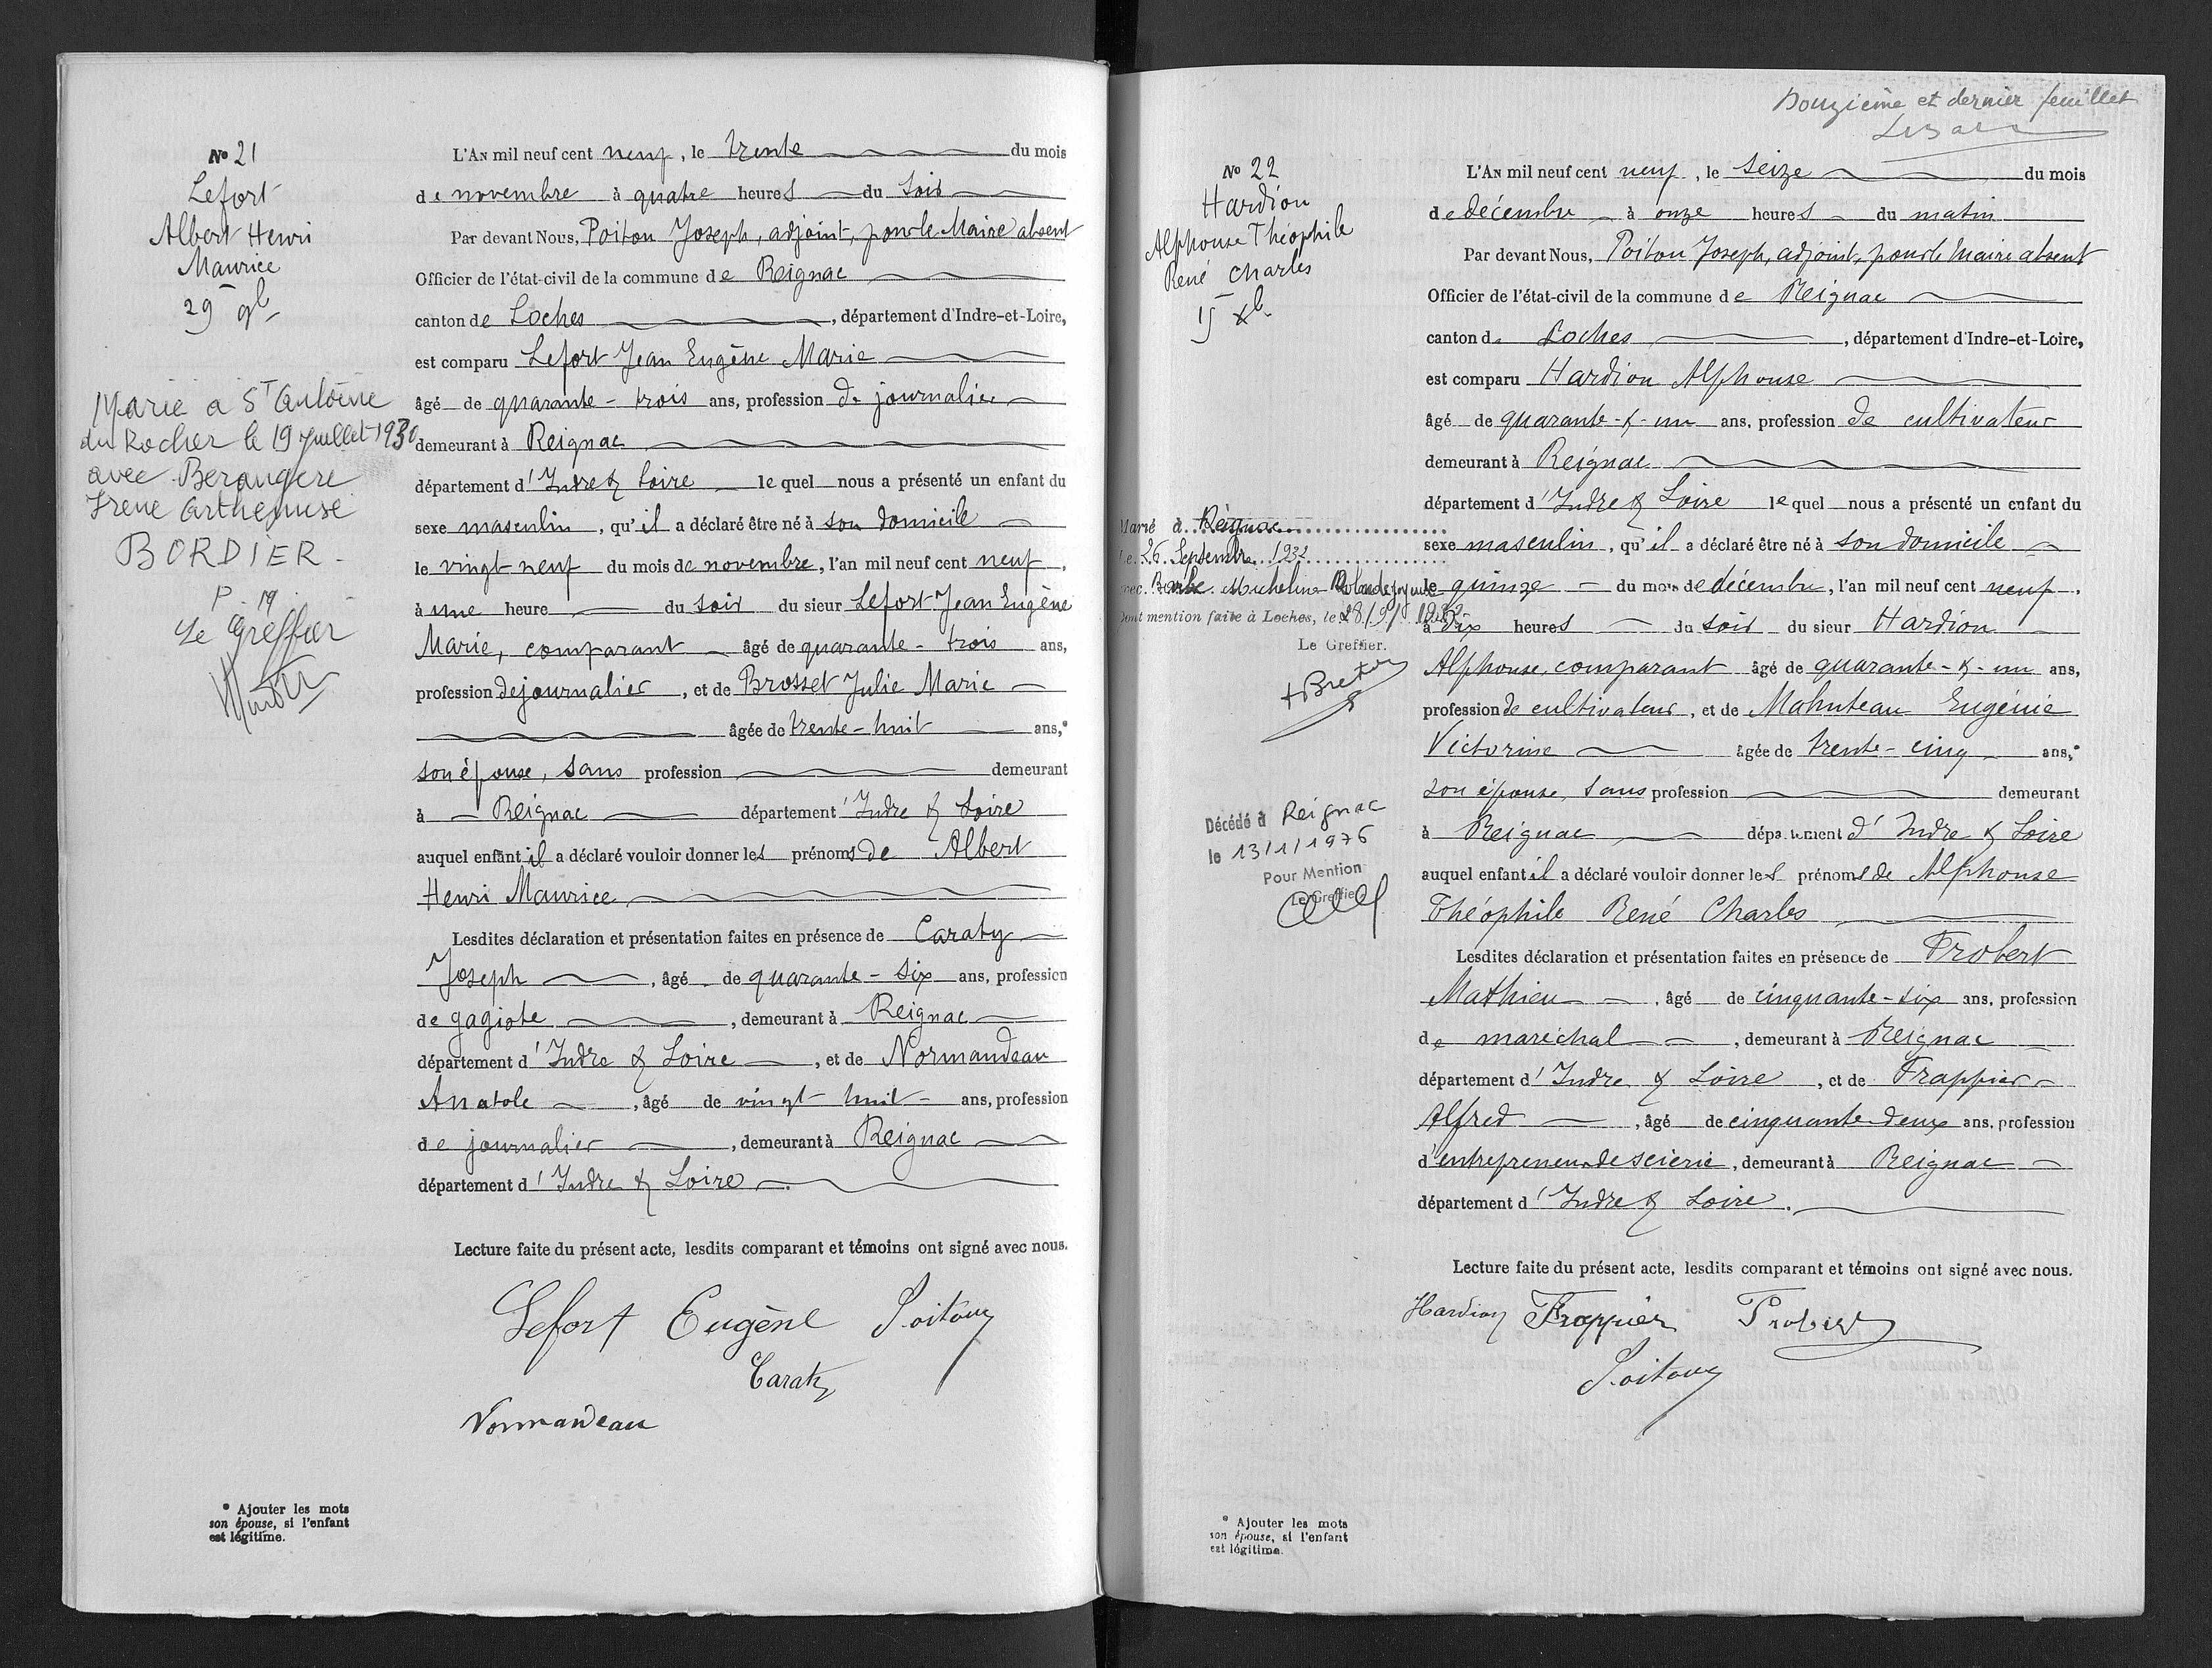 N° 21
Lefort
Albert Henri
Maurice
29 9b
Marié a St Antoine
du Rocher le 19 juillet 1930
avec Berangere
Irene Arthemise
BORDIER
P.
Le Greffier
L'AN mil neuf cent neuf, le trente du mois
de novembre à quatre heures du soir
Par devant Nous, Poitou Joseph, adjoint, pour le Maire absent
Officier de l'état-civil de la commune de Reignac
canton de Loches, département d'Indre-et-Loire,
est comparu Lefort Jean Eugène Marie
âgé de quarante-trois ans, profession de journalier
demeurant à Reignac
département d'Indre & Loire lequel nous a présenté un enfant du
sexe masculin, qu'il a déclaré être né à son domicile
le vingt-neuf du mois de novembre, l'an mil neuf cent neuf,
à une heure du soir du sieur Lefort Jean Eugène
Marie, comparant âgé de quarante-trois ans,
profession de journalier, et de Brosset Julie Marie
âgée de trente-huit ans,*
son épouse, sans profession demeurant
à Reignac département d'Indre & Loire
auquel enfant il a déclaré vouloir donner les prénoms de Albert
Henri Maurice
Lesdites déclaration et présentation faites en présence de Caraty
Joseph, âgé de quarante-six ans, profession
de gagiste, demeurant à Reignac
département d'Indre & Loire, et de Normandeau
Anatole, âgé de vingt huit ans, profession
de journalier, demeurant à Reignac
département d'Indre & Loire.
Lecture faite du présent acte, lesdits comparant et témoins ont signé avec nous.
Lefort Eugène Poitou
Caraty
Normandeau
* Ajouter les mots
son épouse, si l'enfant
est légitime.
Douzième et dernier feuillet
N° 22
Hardion
Alphonse Théophile
René Charles
15 Xb
Marié à Reignac
le 26 Septembre 1932
avec Micheline
Dont mention faite à Loches, le 28/9/1932
Le Greffier.
Décédé à Reignac
le 13/1/1976
Pour Mention
Le Greffier
L'AN mil neuf cent neuf, le seize du mois
de décembre à onze heures du matin
Par devant Nous, Poitou Joseph, adjoint, pour le Maire absent
Officier de l'état-civil de la commune de Reignac
canton de Loches, département d'Indre-et-Loire,
est comparu Hardion Alphonse
âgé de quarante-&-un ans, profession de cultivateur
demeurant à Reignac
département d'Indre & Loire lequel nous a présenté un enfant du
sexe masculin, qu'il a déclaré être né à son domicile
le quinze du mois de décembre, l'an mil neuf cent neuf,
à dix heures du soir du sieur Hardion
Alphonse, comparant âgé de quarante-&-un ans,
profession de cultivateur, et de Mahuteau Eugénie
Victorine âgée de trente-cinq ans,*
son épouse, sans profession demeurant
à Reignac département d'Indre & Loire
auquel enfant il a déclaré vouloir donner les prénoms de Alphonse
Théophile René Charles
Lesdites déclaration et présentation faites en présence de Probert
Mathieu, âgé de cinquante-six ans, profession
de maréchal, demeurant à Reignac
département d'Indre & Loire, et de Frappier
Alfred, âgé de cinquante-deux ans, profession
d'entrepreneur de scierie, demeurant à Reignac
département d'Indre & Loire.
Lecture faite du présent acte, lesdits comparant et témoins ont signé avec nous.
Hardion Frappier Probert
Poitou
* Ajouter les mots
son épouse, si l'enfant
est légitime.